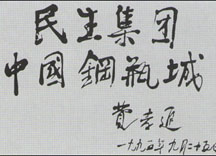 民生集团
中國鋼瓶城
費孝通
一九九五年九月二十五日